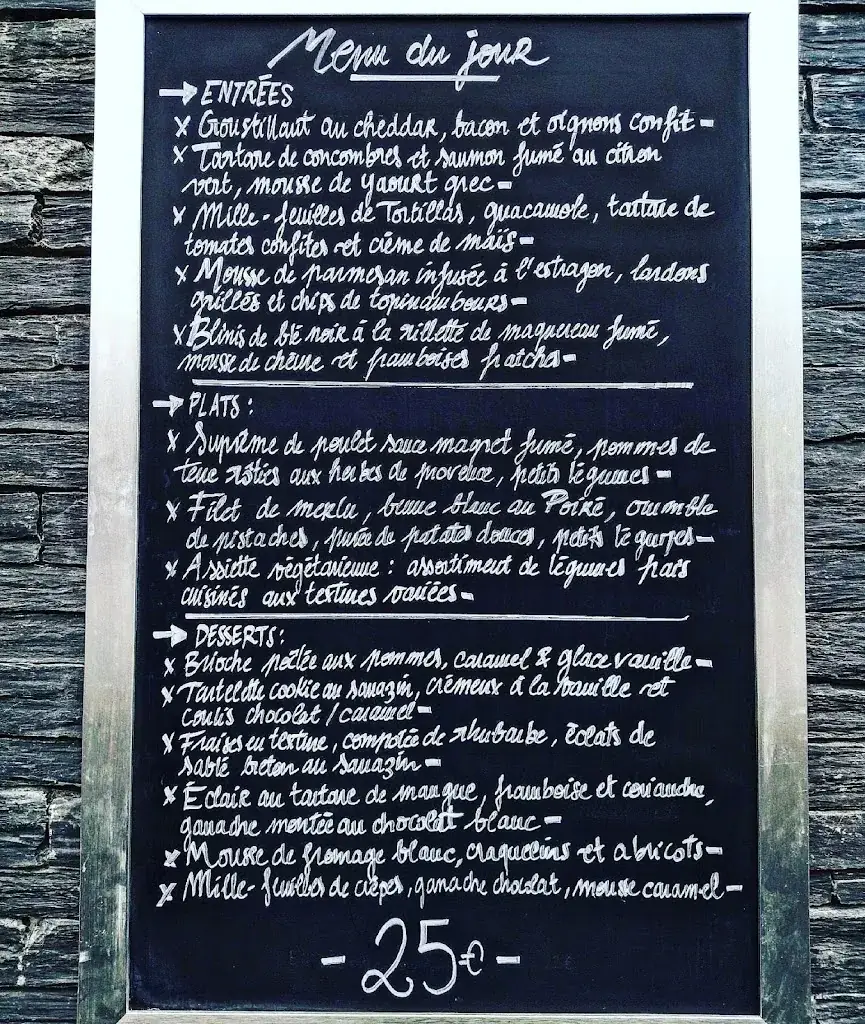 Menu du jour
→ ENTRÉES
x Croustillant au cheddar, bacon et oignons confit -
x Tartare de concombres et saumon fumé au citron
vert, mousse de yaourt grec -
x Mille-feuilles de Tortillas, guacamole, tartare de
tomates confites et crème de maïs -
x Mousse de parmesan infusée à l'estragon, lardons
grillés et chips de topinambours -
x Blinis de blé noir à la rillette de maquereau fumé,
mousse de chèvre et framboises fraîches -
→ PLATS :
x Suprême de poulet sauce magret fumé, pommes de
terre rôties aux herbes de provence, petits légumes -
x Filet de merlu, beurre blanc au Poiré, crumble
de pistaches, purée de patates douces, petits légumes -
x Assiette végétarienne : assortiment de légumes frais
cuisinés aux textures variées -
→ DESSERTS :
x Brioche poêlée aux pommes, caramel & glace vanille -
x Tartelette cookie au sarrazin, crémeux à la vanille et
coulis chocolat / caramel -
x Fraises en texture, compotée de rhubarbe, éclats de
sablé breton au sarrazin -
x Éclair au tartare de mangue, framboise et coriandre,
ganache montée au chocolat blanc -
x Mousse de fromage blanc, craquelins et abricots -
x Mille-feuilles de crêpes, ganache chocolat, mousse caramel -
- 25€ -